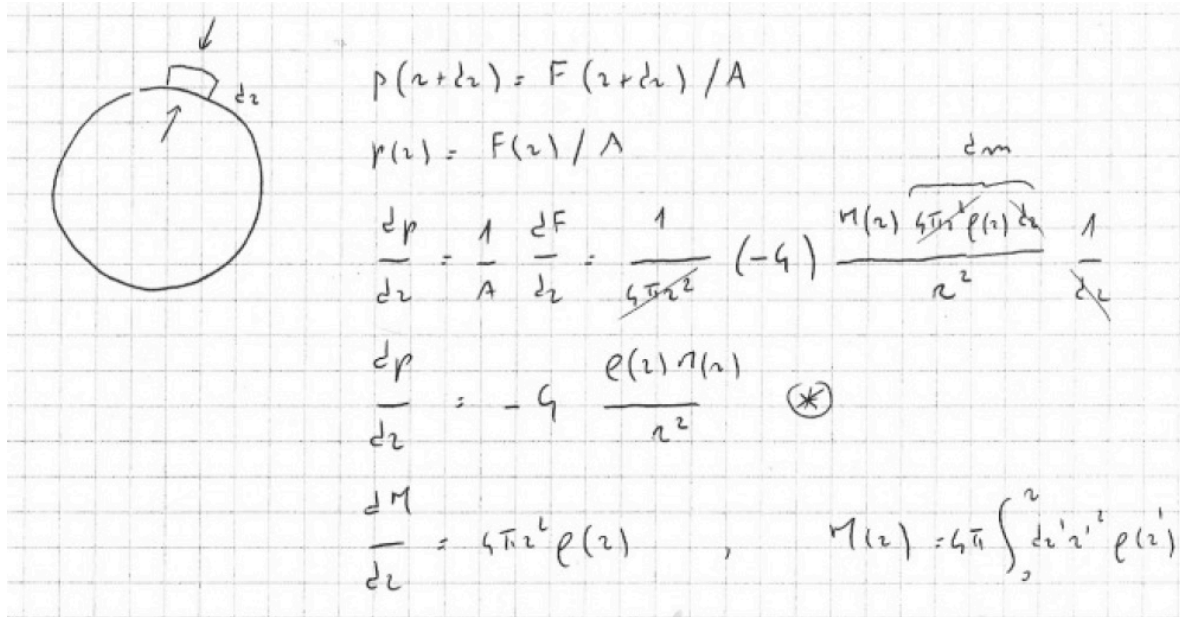 dr
p(r+dr) = F(r+dr)/A
p(r) = F(r)/A
dm
dp/dr = 1/A dF/dr = 1/(4πr²) (-G) M(r) 4πr²ρ(r)dr/r² 1/dr
dp/dr = -G ρ(r)M(r)/r² ⊛
dM/dr = 4πr²ρ(r) , M(r) = 4π∫₀ʳ dr'r'²ρ(r')